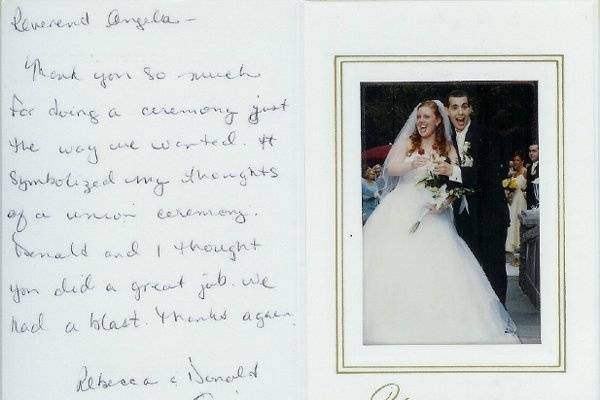 Reverend Angela -
Thank you so much
for doing a ceremony just
the way we wanted. It
symbolized my thoughts
of a union ceremony.
Donald and I thought
you did a great job. We
had a blast. Thanks again.
Rebecca & Donald